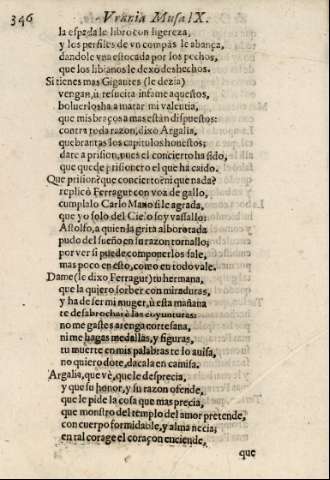 346
Vrania Musa IX.
la espada le libro con ligereza,
y los perfiles de vn compàs le abança,
dandole vna estocada por los pechos,
que los libianos le dexò deshechos.
Si tienes mas Gigantes (le dezia)
vengan, ù resucita infame aquestos,
boluerlos ha a matar mi valentia,
que mis braços a mas estàn dispuestos:
contra toda razon, dixo Argalia,
quebrantas los capitulos honestos;
date a prision, pues el concierto ha sido,
que quede prisionero el que ha caido.
Que prision? que concierto? ni que nada?
replicò Ferragut con voz de gallo,
cumplalo Carlo Mano si le agrada,
que yo solo del Cielo soy vassallo:
Astolfo, a quien la grita alborotada
pudo del sueño en su razon tornallo,
por ver si puede componerlos sale,
mas poco en esto, como en todo vale.
Dame (le dixo Ferragut) tu hermana,
que la quiero sorber con miraduras,
y ha de ser mi muger, ù esta mañana
te desabrocharè las coyunturas:
no me gastes arenga cortesana,
ni me hagas medallas, y figuras,
tu muerte en mis palabras te lo auisa,
no quiero dote, dacala en camisa.
Argalia, que vè, que le desprecia,
y que su honor, y su razon ofende,
que le pide la cosa que mas precia,
que monstro del templo del amor pretende,
con cuerpo formidable, y alma necia;
en tal corage el coraçon enciende,
que